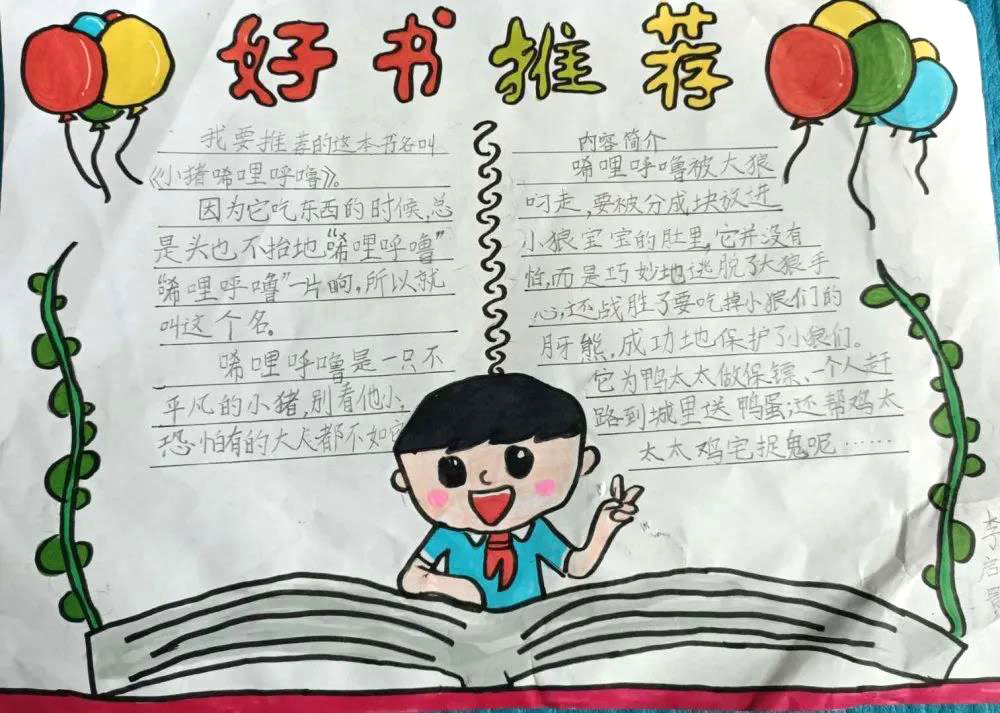 好书推荐
我要推荐的这本书名叫
《小猪唏哩呼噜》。
因为它吃东西的时候,总
是头也不抬地“唏哩呼噜”
“唏哩呼噜”一片响,所以就
叫这个名。
唏哩呼噜是一只不
平凡的小猪,别看他小,
恐怕有的大人都不如它
内容简介
唏哩呼噜被大狼
叼走,要被分成块放进
小狼宝宝的肚里,它并没有
怕,而是巧妙地逃脱了大狼手
心,还战胜了要吃掉小狼们的
月牙熊,成功地保护了小狼们。
它为鸭太太做保镖、一个人赶
路到城里送鸭蛋;还帮鸡太
太太鸡宅捉鬼呢……